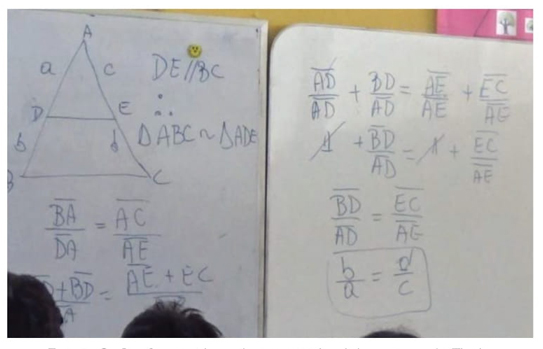 A
a c
D E
b d
C
DE//BC
∴
ΔABC ~ ΔADE
BA/DA = AC/AE
+BD = AE + EC
AD/AD + BD/AD = AE/AE + EC/AE
1 + BD/AD = 1 + EC/AE
BD/AD = EC/AE
b/a = d/c